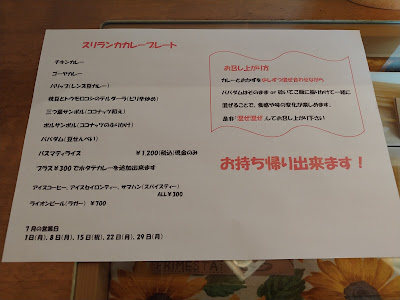 スリランカカレープレート
チキンカレー
ゴーヤカレー
パリップ(レンズ豆カレー)
枝豆とトウモロコシのテルダーラ(ピリ辛炒め)
三つ葉サンボル(ココナッツ和え)
ポルサンボル(ココナッツのふりかけ)
パパダム(豆せんべい)
バスマティライス
¥1,200(税込)現金のみ
プラス¥300でホタテカレーを追加出来ます
アイスコーヒー、アイスセイロンティー、サマハン(スパイスティー)
ALL¥300
ライオンビール(ラガー) ¥700
7月の営業日
1日(月)、8日(月)、15日(祝)、22日(月)、29日(月)
お召し上がり方
カレーとおかずを少しずつ混ぜ合わせながら
パパダムはそのまま or 砕いてご飯に振りかけて一緒に
混ぜることで、食感や味の変化が楽しめます。
是非"混ぜ混ぜ"してお召し上がり下さい
お持ち帰り出来ます！